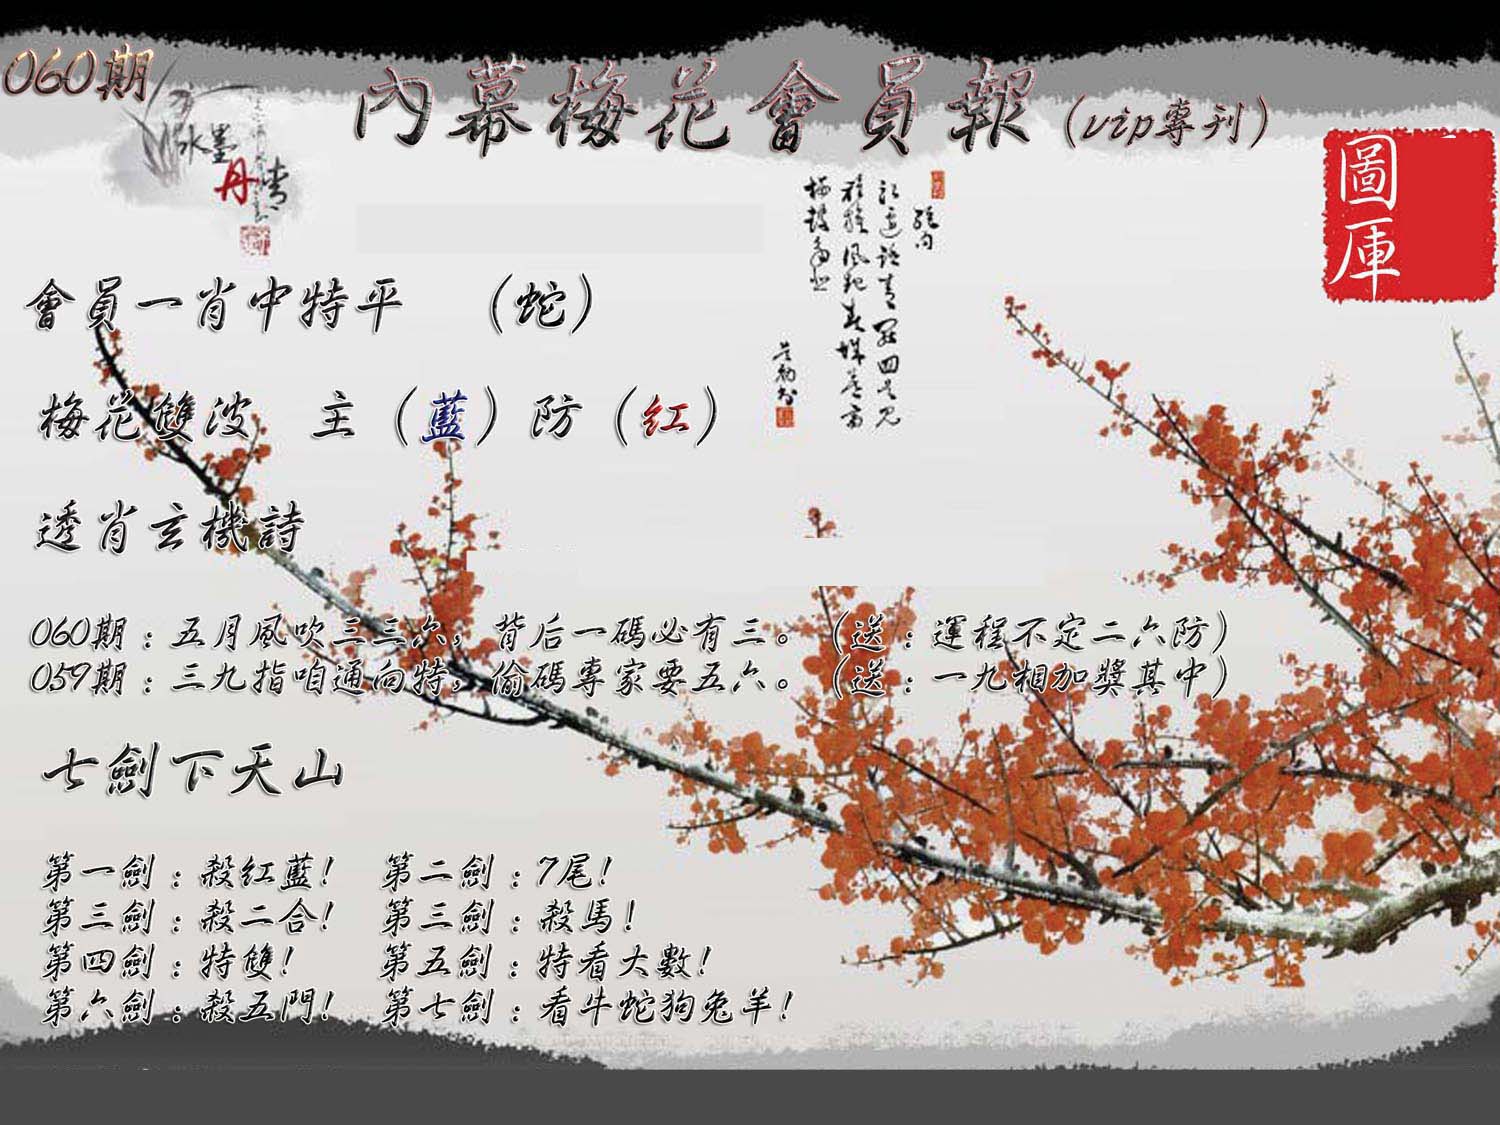 060期
內幕梅花會員報(vip專刊)
水墨
丹青
圖庫
會員一肖中特平 (蛇)
梅花雙波 主(藍)防(紅)
透肖玄機詩
060期：五月風吹三三六，背后一碼必有三。(送：運程不定二六防)
059期：三九指咱通向特，偷碼專家要五六。(送：一九相加獎其中)
七劍下天山
第一劍：殺紅藍! 第二劍：7尾!
第三劍：殺二合! 第三劍：殺馬!
第四劍：特雙! 第五劍：特看大數!
第六劍：殺五門! 第七劍：看牛蛇狗兔羊!